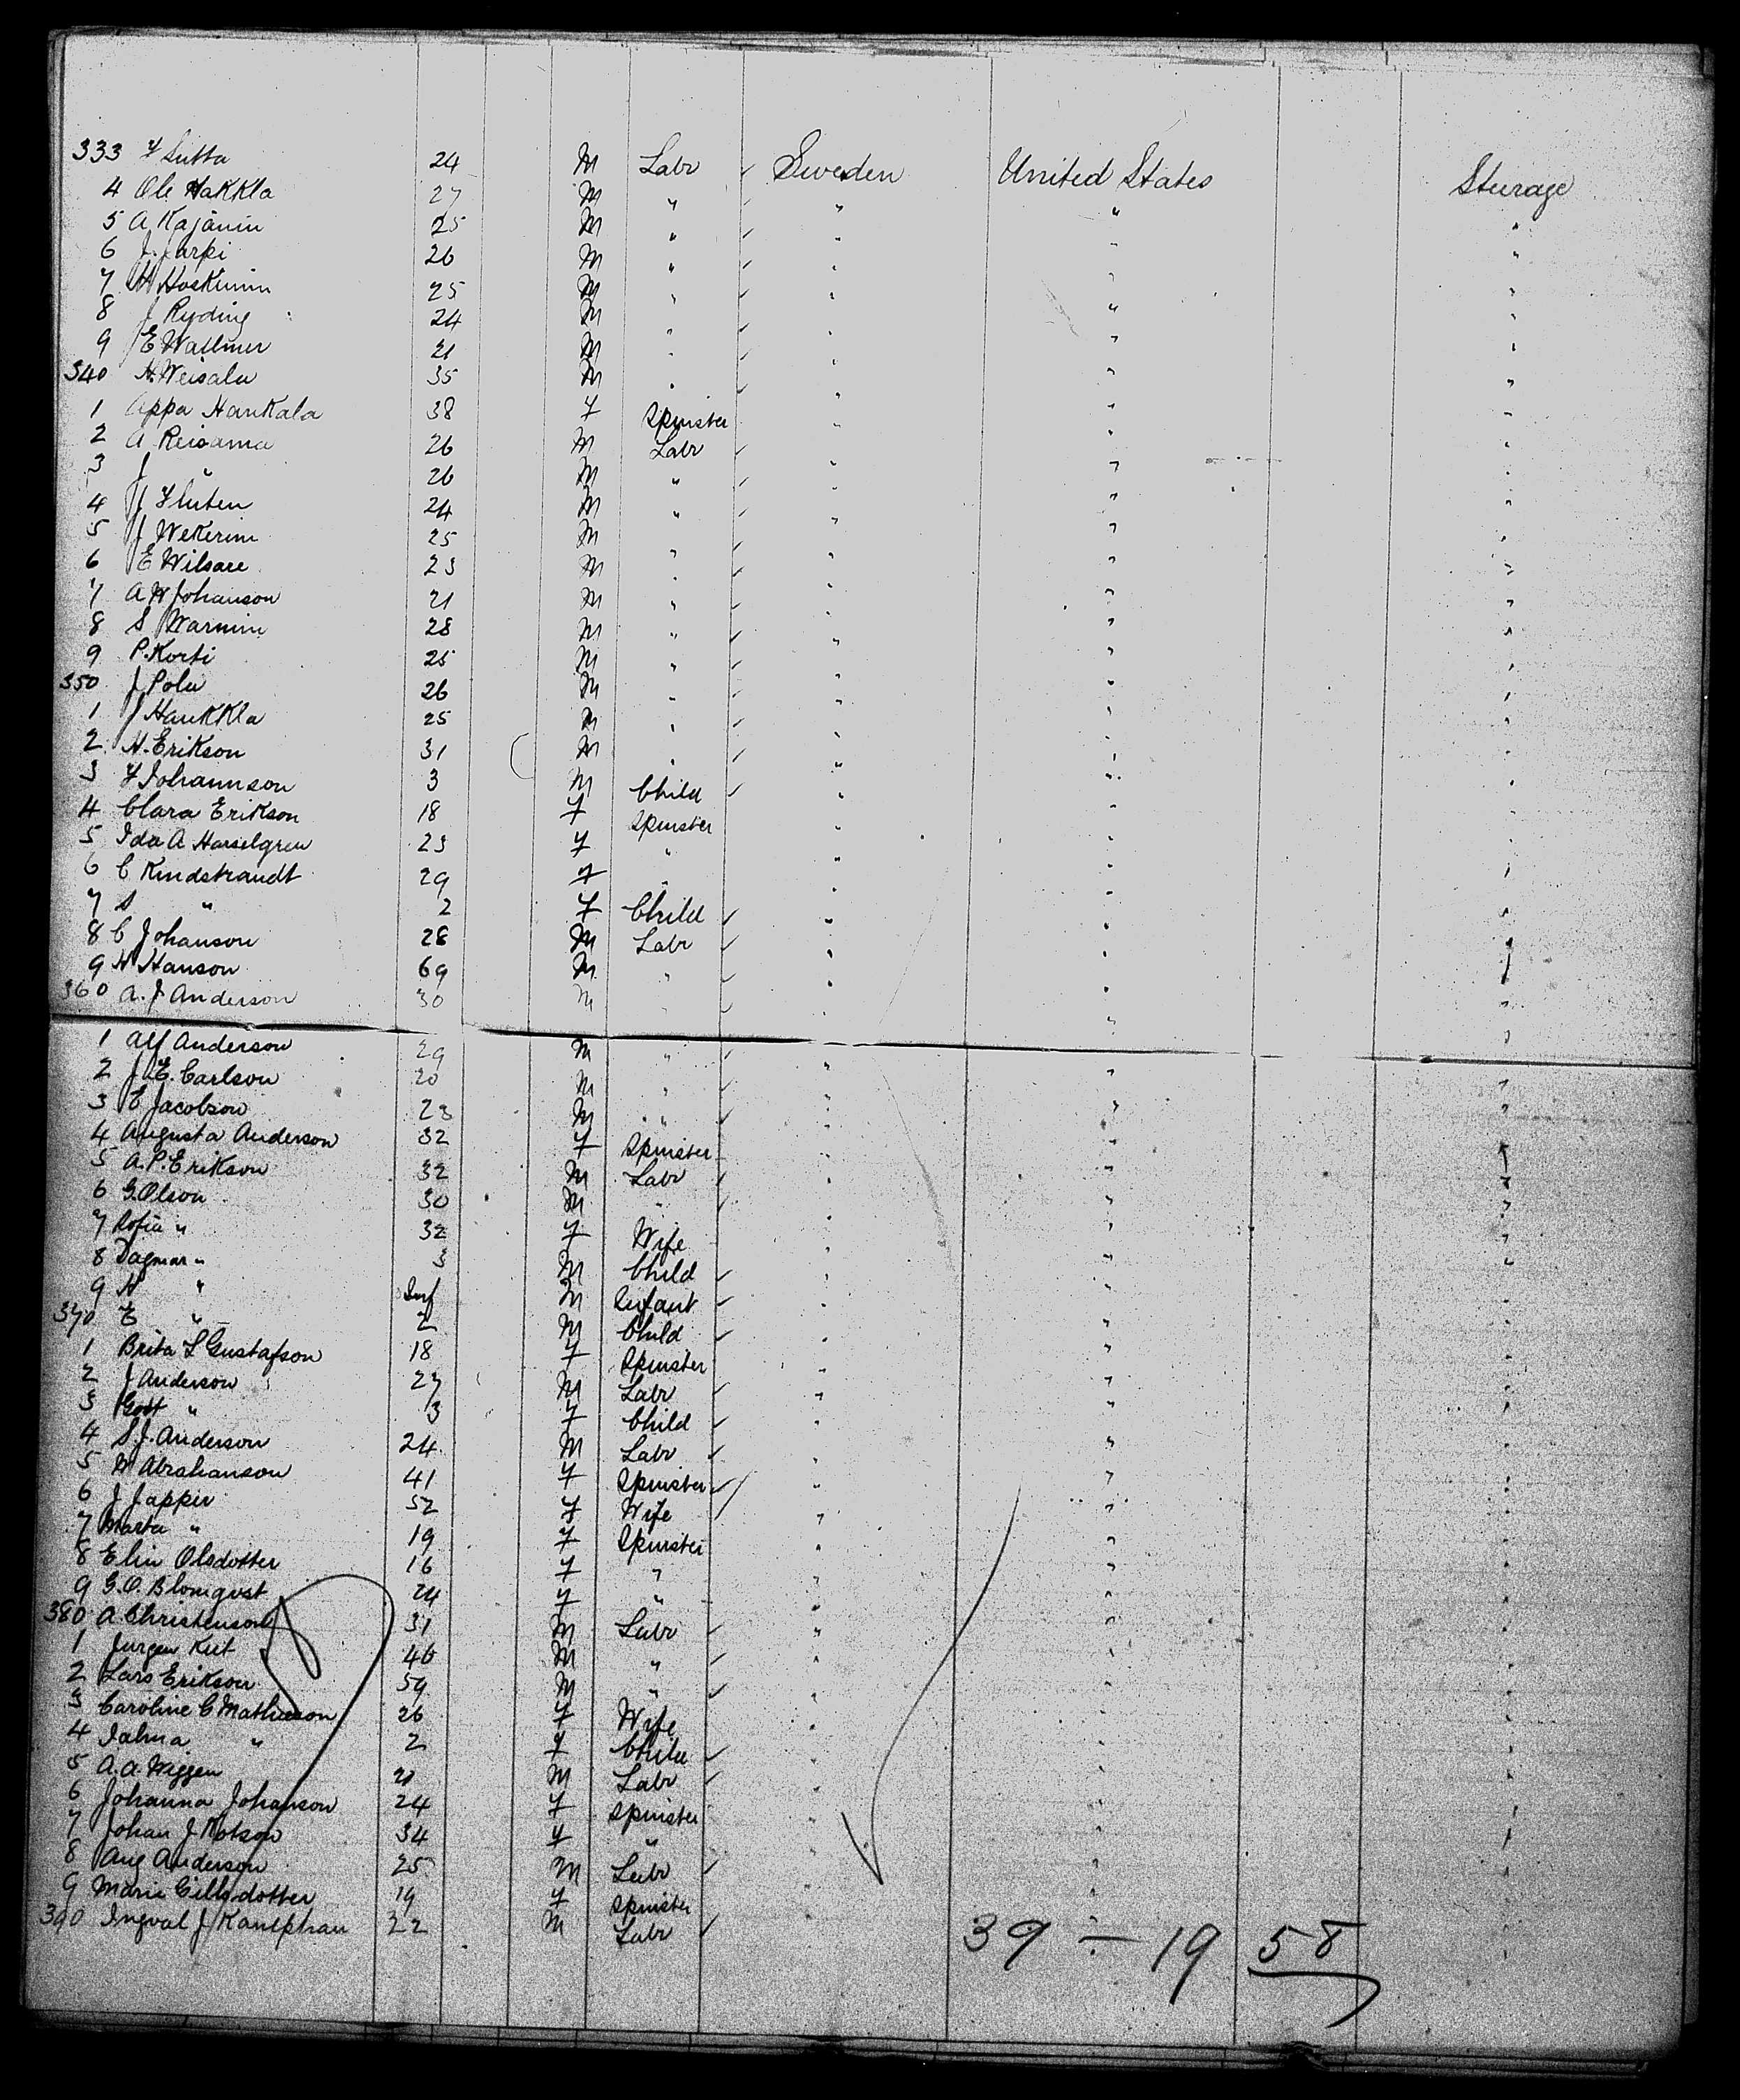 333 F Sutta 24 M Labr ✓ Sweden United States Steerage
4 Ole Hakkla 27 M " ✓ " " "
5 A Kajanin 25 M " ✓ " " "
6 J. Jarpi 26 M " ✓ " " "
7 Hoskinin 25 M " ✓ " " "
8 J Ryding 24 M " ✓ " " "
9 E Wallmer 21 M " ✓ " " "
340 H. Weisala 35 M " ✓ " " "
1 Appa Hankala 38 F Spinster " " "
2 A Reisama 26 M Labr ✓ " " "
3 J " 26 M " ✓ " " "
4 J Fluten 24 M " ✓ " " "
5 J Wekerim 25 M " ✓ " " "
6 E Wilsare 23 M " ✓ " " "
7 A W Johanson 21 M " ✓ " " "
8 S Warnim 28 M " ✓ " " "
9 P. Korti 25 M " ✓ " " "
350 J Polu 26 M " ✓ " " "
1 J Haukkla 25 M " ✓ " " "
2 H. Erikson 31 M " ✓ " " "
3 F Johannson 3 M Child ✓ " " "
4 Clara Erikson 18 F Spinster " " "
5 Ida A Harselgren 23 F " " " "
6 C Kindstrandt 29 F " " " "
7 S " 2 F Child ✓ " " "
8 C Johanson 28 M Labr ✓ " " "
9 H Hanson 69 M " ✓ " " "
360 A. J Anderson 30 M " ✓ " " "
1 Alf Anderson 29 M " ✓ " " "
2 J. E. Carlson 20 M " ✓ " " "
3 E Jacobson 23 M " ✓ " " "
4 Augusta Anderson 32 F Spinster " " "
5 A. P. Erikson 32 M Labr ✓ " " "
6 G. Olson 30 M " ✓ " " "
7 Sofia " 32 F Wife " " "
8 Dagmar " 3 M Child ✓ " " "
9 N " Inf M Infant ✓ " " "
370 E " 2 M Child ✓ " " "
1 Brita L Gustafson 18 F Spinster " " "
2 J Anderson 27 M Labr ✓ " " "
3 " 3 F Child ✓ " " "
4 S. J. Anderson 24 M Labr ✓ " " "
5 Abrahanson 41 F Spinster ✓ " " "
6 J Jappir 52 F Wife " " "
7 Marta " 19 F Spinster " " "
8 Elin Olsdotter 16 F " " " "
9 G. O. Blomqvst 24 F " " " "
380 A Christenson 31 M Labr ✓ " " "
1 Jurgen Kut 46 M " ✓ " " "
2 Lars Erikson 59 M " ✓ " " "
3 Caroline C Matheson 26 F Wife " " "
4 Ialma " 2 F Child ✓ " " "
5 A. A. Wiggen 21 M Labr ✓ " " "
6 Johanna Johanson 24 F Spinster " " "
7 Johan J 34 F " " " "
8 Aug Anderson 25 M Labr ✓ " " "
9 Marie Cillsdotter 19 F Spinster " " "
390 Ingval J 22 M Labr ✓ " " "
39 — 19 58